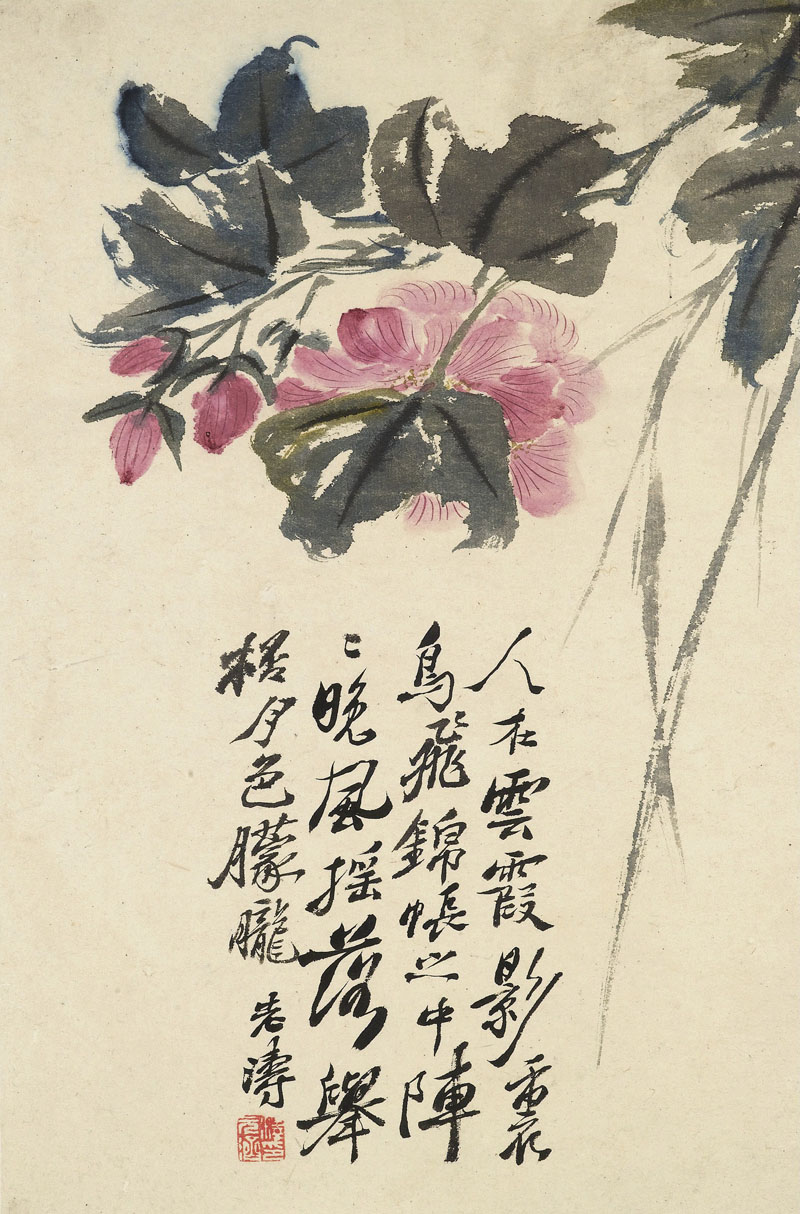 人在雲霞影裏
鳥飛錦帳之中陣
〻晚風搖落舉
桮月色朦朧
老濤